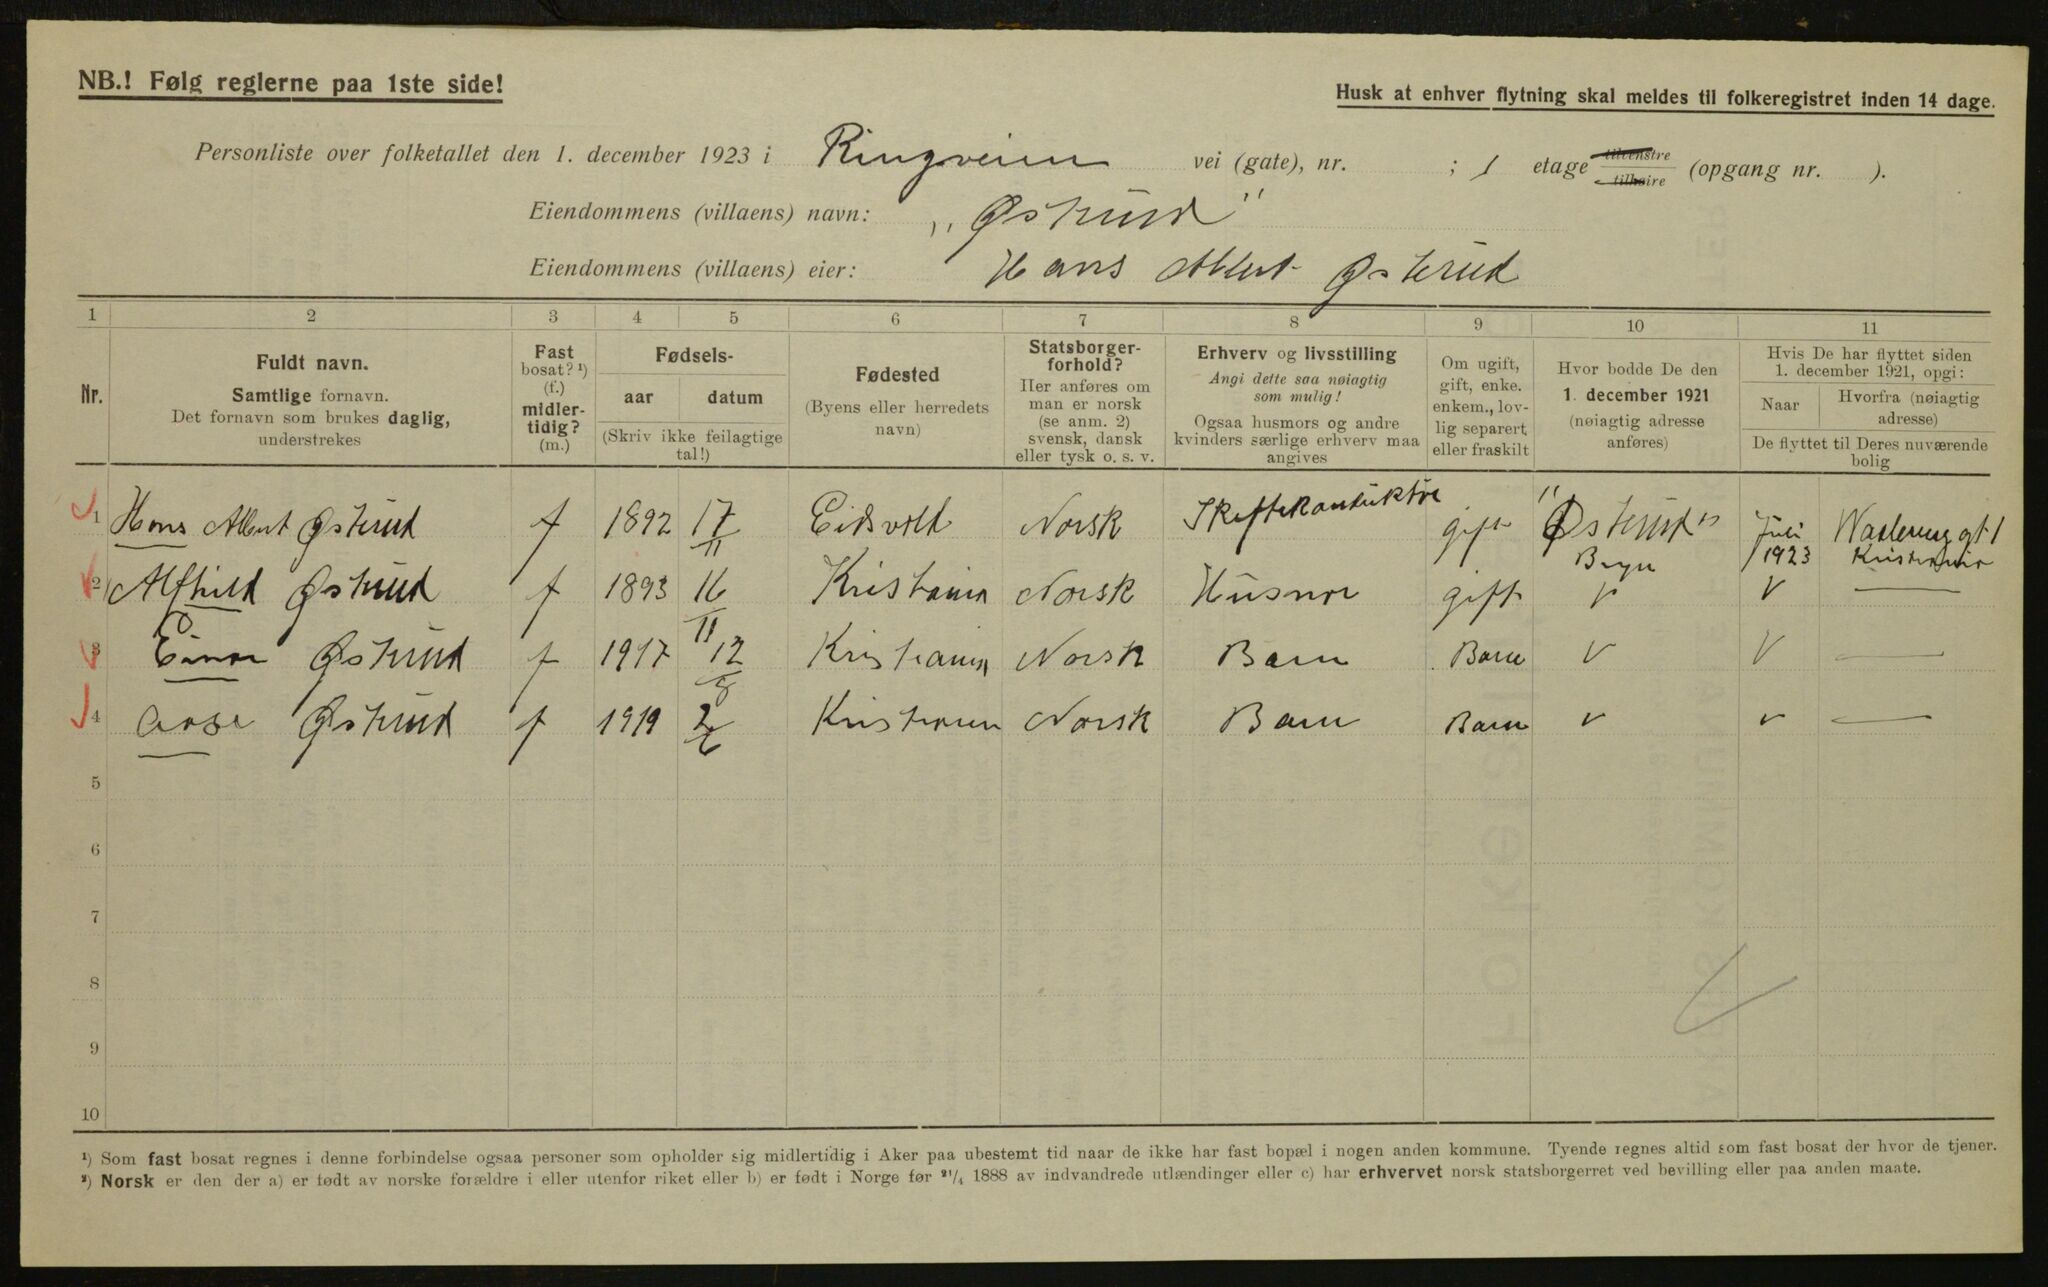 NB.! Følg reglerne paa 1ste side!
Husk at enhver flytning skal meldes til folkeregistret inden 14 dage.
Personliste over folketallet den 1. december 1923 i Ringveien vei (gate), nr. ; 1 etage tilvenstre tilhøire (opgang nr. ).
Eiendommens (villaens) navn: „Østerud"
Eiendommens (villaens) eier: Hans Albert Østerud
1 2 3 4 5 6 7 8 9 10 11
Nr.
Fuldt navn.
Samtlige fornavn.
Det fornavn som brukes daglig,
understrekes
Fast
bosat? ¹)
(f.)
midler-
tidig?
(m.)
Fødsels-
aar datum
(Skriv ikke feilagtige
tal!)
Fødested
(Byens eller herredets
navn)
Statsborger-
forhold?
Her anføres om
man er norsk
(se anm. 2)
svensk, dansk
eller tysk o. s. v.
Erhverv og livsstilling
Angi dette saa nøiagtig
som mulig!
Ogsaa husmors og andre
kvinders særlige erhverv maa
angives
Om ugift,
gift, enke.
enkem., lov-
lig separert
eller fraskilt
Hvor bodde De den
1. december 1921
(nøiagtig adresse
anføres)
Hvis De har flyttet siden
1. december 1921, opgi:
Naar
Hvorfra (nøiagtig
adresse)
De flyttet til Deres nuværende
bolig
1 Hans Albert Østerud f 1892 17/11 Eidsvold Norsk Skiftekonduktør gift "Østerud" Bryn Juli 1923 Vaalereng gt 1 Kristiania
2 Alfhild Østerud f 1893 16/11 Kristiania Norsk Husmor gift v v —
3 Einar Østerud f 1917 12/8 Kristiania Norsk Barn Barn v v —
4 Aase Østerud f 1919 2/6 Kristiania Norsk Barn Barn v v —
5
6
7
8
9
10
¹) Som fast bosat regnes i denne forbindelse ogsaa personer som opholder sig midlertidig i Aker paa ubestemt tid naar de ikke har fast bopæl i nogen anden kommune. Tyende regnes altid som fast bosat der hvor de tjener.
²) Norsk er den der a) er født av norske forældre i eller utenfor riket eller b) er født i Norge før ²¹/₄ 1888 av indvandrede utlændinger eller c) har erhvervet norsk statsborgerret ved bevilling eller paa anden maate.